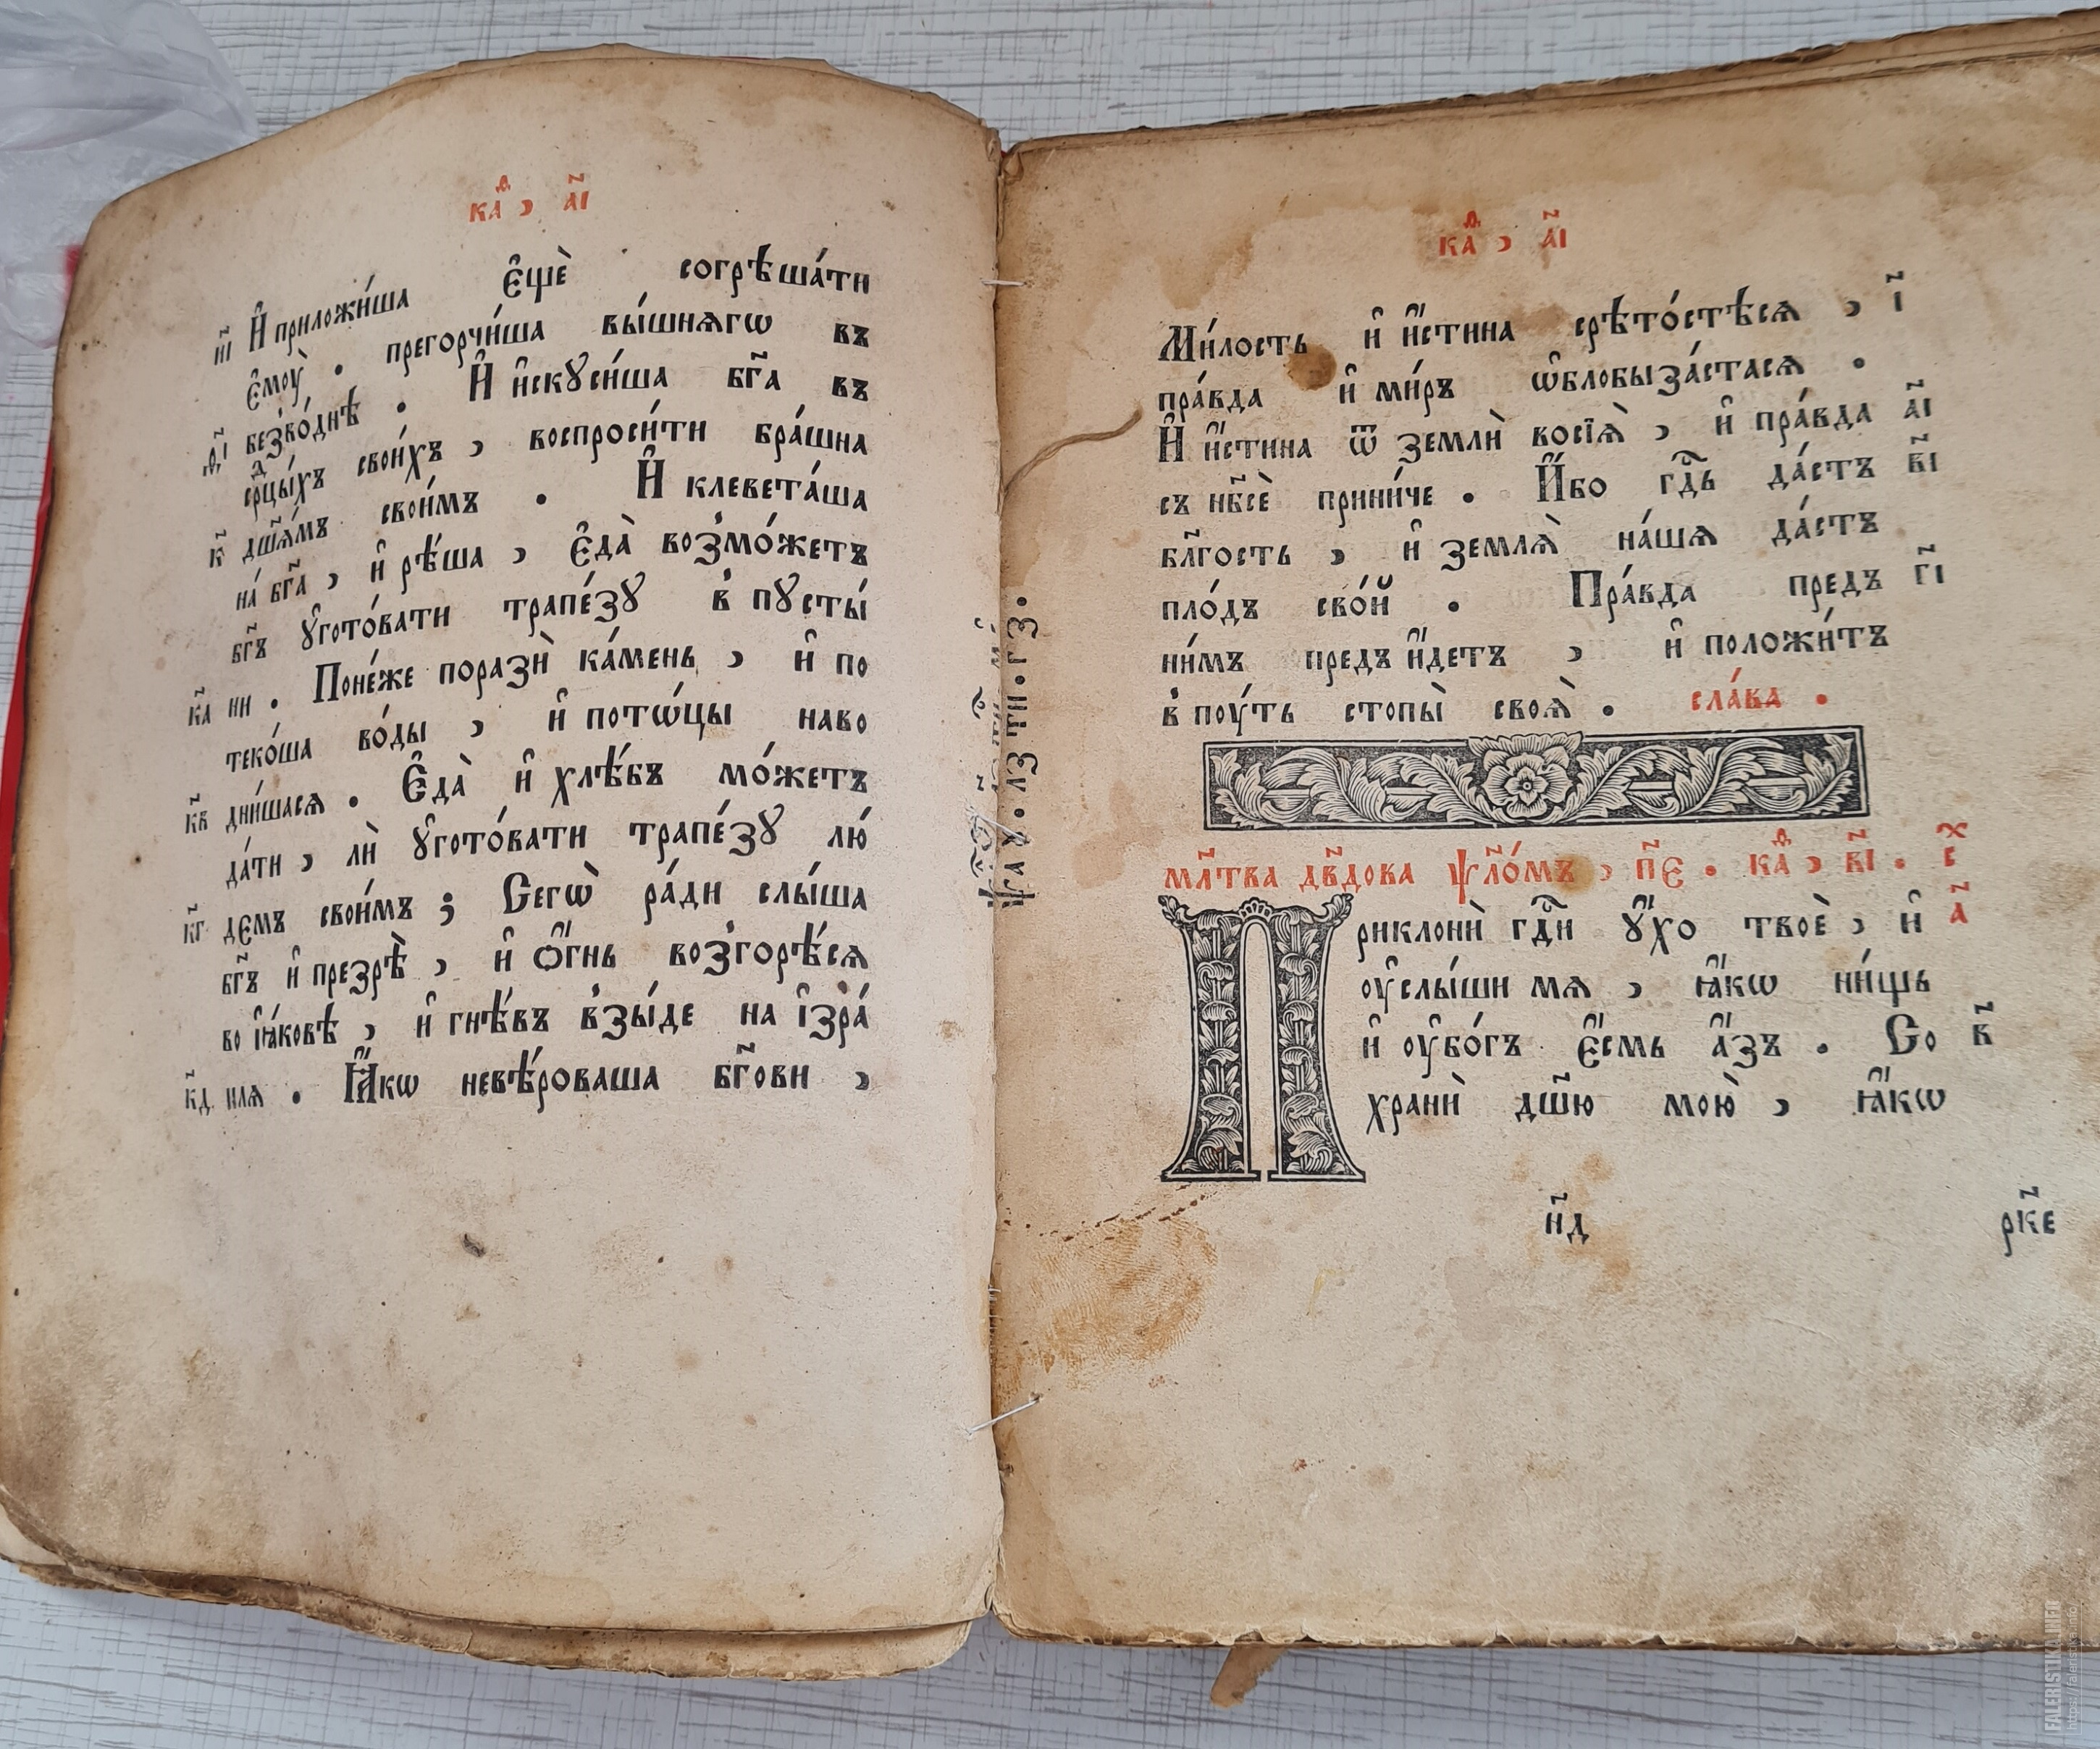 каѳ҃ , а҃і
и҃і И҆ приложи́ша є҆щѐ согрѣша́ти
є҆моу̀ . прегорчи́ша вы́шнѧгѡ въ
ѳ҃і безво́днѣ . И҆ и҆скꙋси́ша бг҃а въ
срдцы́хъ свои́хъ , воспроси́ти бра́шна
к҃ дш҃а́мъ свои́мъ . И҆ клевета́ша
на́ бг҃а , и҆ рѣ́ша , є҆да̀ возмо́жетъ
бг҃ъ ᲂу҆гото́вати трапе́зꙋ в пꙋсты́
к҃а ни . Поне́же поразѝ ка́мень , и҆ по
теко́ша во́ды , и҆ пото́цы наво
к҃в дни́шасѧ . Є҆да̀ и҆ хлѣ́бъ мо́жетъ
да́ти , лѝ ᲂу҆гото́вати трапе́зꙋ лю́
к҃г демъ свои́мъ ; Сегѡ̀ ра́ди слы́ша
бг҃ъ и҆ презрѣ̀ , и҆ ѻ҆́гнь возгорѣ́сѧ
во і҆а́ковѣ , и҆ гнѣ́въ взы́де на і҆зра́
к҃д илѧ . Ꙗ҆́кѡ невѣ́роваша бг҃ови ,
каѳ҃ , а҃і
Ми́лость и҆ и҆́стина срѣто́стѣсѧ , і҃
пра́вда и҆ ми́ръ ѡ҆блобыза́стасѧ .
И҆ и҆́стина ѿ землѝ восїѧ̀ , и҆ пра́вда а҃і
съ нб҃сѐ прини́че . И҆́бо гдⷭ҇ь да́стъ в҃і
бл҃гость , и҆ землѧ̀ на́шѧ да́стъ
пло́дъ сво́й . Пра́вда предъ г҃і
ни́мъ предъ и҆́детъ , и҆ положи́тъ
в поу́ть стопы̀ своѧ̀ . сла́ва .
мл҃тва дв҃дова ѱало́мъ , п҃є . каѳ҃ , в҃і . с х
Приклонѝ гдⷭ҇и ᲂу҆́хо твоѐ , и҆ а҃
оу҆слы́ши мѧ , ꙗ҆́кѡ ни́щь
и҆ оу҆бо́гъ є҆́смь а҆́зъ . Со в҃
хранѝ дш҃ю мою̀ , ꙗ҆́кѡ
н҃д
рк҃є